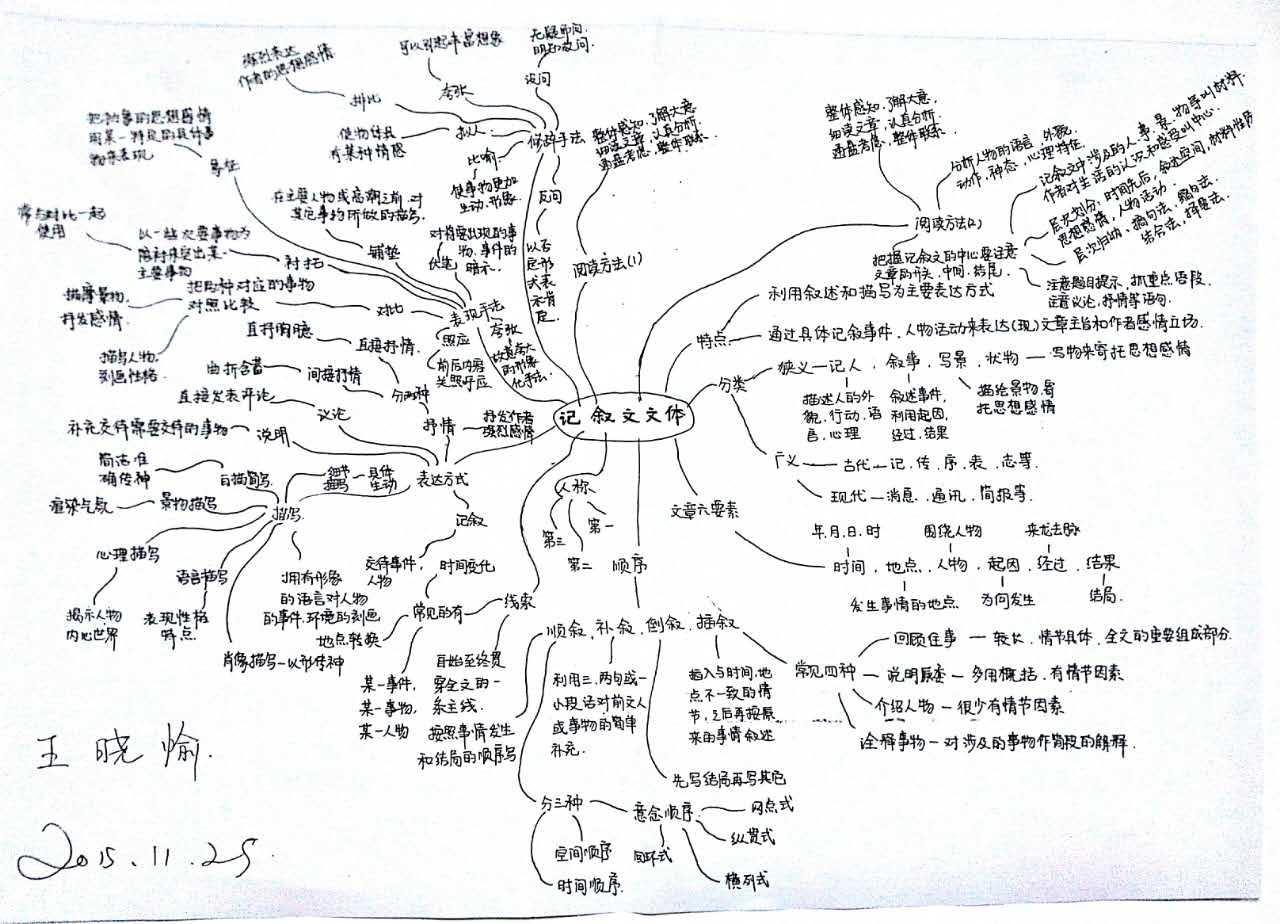 记叙文文体
阅读方法(1)
整体感知,了解大意
细读文章,认真分析.
通盘考虑,整体联系.
阅读方法(2)
整体感知,了解大意.
细读文章,认真分析.
通盘考虑,整体联系.
分析人物的语言,外貌,
动作,神态,心理特征.
记叙文中涉及的人、事、景、物等叫材料.
作者对生活的认识和感受叫中心.
层次划分:时间先后,叙述空间,材料性质
思想感情,人物活动.
层次归纳、摘句法、缩句法.
结合法、择要法.
把握记叙文的中心要注意
文章的开头、中间、结尾.
注意题目提示、抓重点语段.
注意议论,抒情等语句.
特点
利用叙述和描写为主要表达方式
通过具体记叙事件,人物活动来表达(现)文章主旨和作者感情立场.
分类
狭义—记人,叙事,写景,状物—写物来寄托思想感情
描述人的外
貌,行动,语
言,心理
叙述事件,
利用起因,
经过,结果
描绘景物,寄
托思想感情
广义—古代—记、传、序、表、志等.
现代—消息、通讯、简报等.
文章六要素
年、月、日、时
围绕人物
来龙去脉
时间,地点,人物,起因,经过,结果
发生事情的地点
为何发生
结局.
顺序
顺叙,补叙,倒叙,插叙
按照事情发生
和结局的顺序写
利用三、两句或一
小段话对前文人
或事物的简单
补充.
先写结局再写其它
插入与时间,地
点不一致的情
节,之后再按原
来的事情叙述
常见四种
回顾往事—较长,情节具体,全文的重要组成部分.
说明原委—多用概括,有情节因素
介绍人物—很少有情节因素
诠释事物—对涉及的事物作简段的解释.
分三种
空间顺序
时间顺序.
意念顺序
网点式
纵贯式
横列式
回环式
人称
第一
第二
第三
线索
自始至终贯
穿全文的一
条主线.
常见的有
时间变化
地点转换
某一事件,
某一事物,
某一人物
表达方式
记叙
交待事件,
人物
抒情
抒发作者
强烈感情
分两种
直接抒情.
直抒胸臆
间接抒情
曲折含蓄
议论
直接发表评论
说明
补充交待需要交待的事物
描写
细节
描写
具体
生动
白描简写
简洁准
确传神
景物描写
渲染气氛
心理描写
揭示人物
内心世界
语言描写
表现性格
特点
肖像描写—以形传神
拥有形象
的语言对人物
的事件,环境的刻画
表现手法
夸张
故意夸大
的形象
化手法.
照应
前后内容
关照呼应
对比
把两种对应的事物
对照比较
描摩景物.
抒发感情.
描写人物.
刻画性格.
衬托
以一些次要事物为
陪衬来突出某一
主要事物
常与对比一起
使用
象征
把抽象的思想感情
用某一特点的具体事
物来表现
铺垫
在主要人物或高潮之前,对
其它事物所做的描写.
伏笔
对将要出现的事
物、事件的
暗示.
修辞手法
比喻
使事物更加
生动、形象
拟人
使物体具
有某种情感
排比
强烈表达
作者的思想感情
夸张
可以引起丰富想象
设问
无疑而问,
明知故问.
反问
以否
定形
式表
示肯
定.
王晓愉.
2015.11.25.